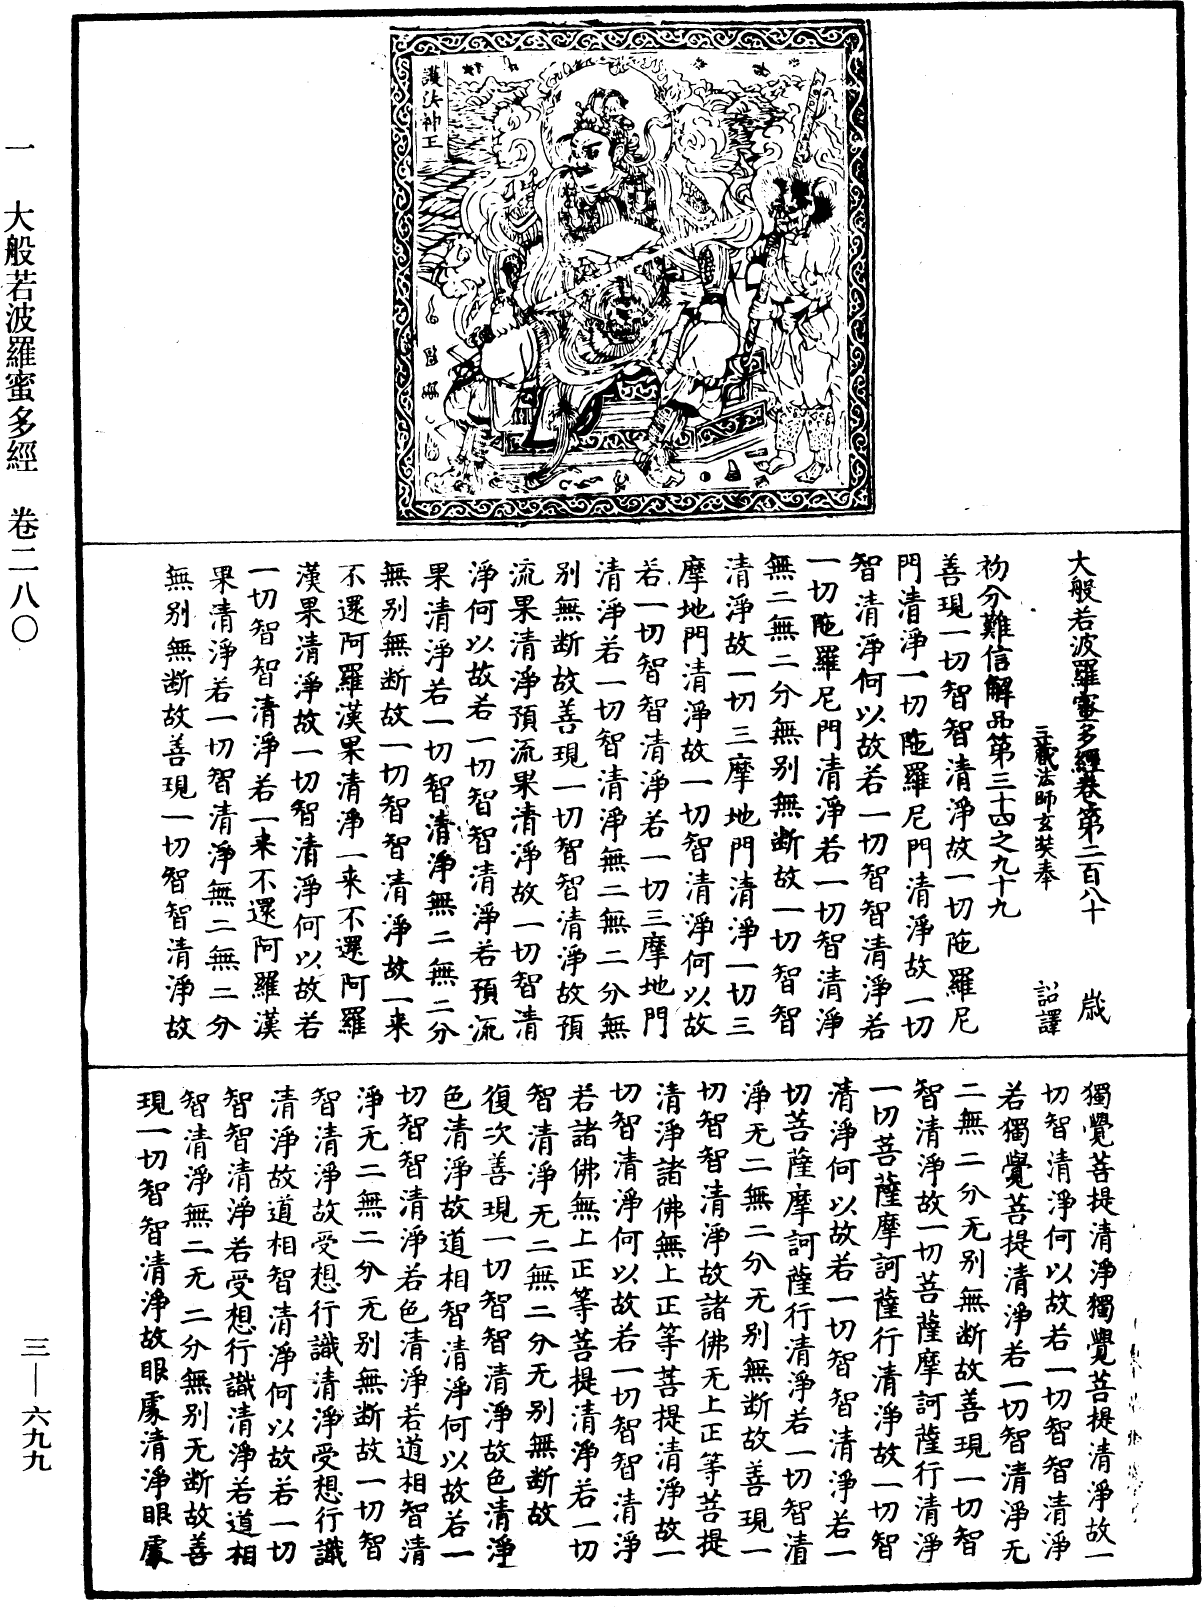 護法神王
大般若波羅蜜多經卷第二百八十 歲
三藏法師玄奘奉 詔譯
初分難信解品第三十四之九十九
善現一切智智清淨故一切陁羅尼
門清淨一切陁羅尼門清淨故一切
智智清淨何以故若一切智智清淨若
一切陁羅尼門清淨若一切智清淨
無二無二分無別無斷故一切智智
清淨故一切三摩地門清淨一切三
摩地門清淨故一切智清淨何以故
若一切智智清淨若一切三摩地門
清淨若一切智清淨無二無二分無
別無斷故善現一切智智清淨故預
流果清淨預流果清淨故一切智清
淨何以故若一切智智清淨若預流
果清淨若一切智清淨無二無二分
無別無斷故一切智智清淨故一来
不還阿羅漢果清淨一来不還阿羅
漢果清淨故一切智清淨何以故若
一切智智清淨若一来不還阿羅漢
果清淨若一切智清淨無二無二分
無別無断故善現一切智智清淨故
獨覺菩提清淨獨覺菩提清淨故一
切智清淨何以故若一切智智清淨
若獨覺菩提清淨若一切智清淨无
二無二分无別無断故善現一切智
智清淨故一切菩薩摩訶薩行清淨
一切菩薩摩訶薩行清淨故一切智
清淨何以故若一切智智清淨若一
切菩薩摩訶薩行清淨若一切智清
淨无二無二分无別無断故善現一
切智智清淨故諸佛无上正等菩提
清淨諸佛無上正等菩提清淨故一
切智清淨何以故若一切智智清淨
若諸佛無上正等菩提清淨若一切
智清淨无二無二分无別無断故
復次善現一切智智清淨故色清淨
色清淨故道相智清淨何以故若一
切智智清淨若色清淨若道相智清
淨无二無二分无別無断故一切智
智清淨故受想行識清淨受想行識
清淨故道相智清淨何以故若一切
智智清淨若受想行識清淨若道相
智清淨無二无二分無別无断故善
現一切智智清淨故眼處清淨眼處
一 大般若波羅蜜多經 卷二八〇
三—六九九